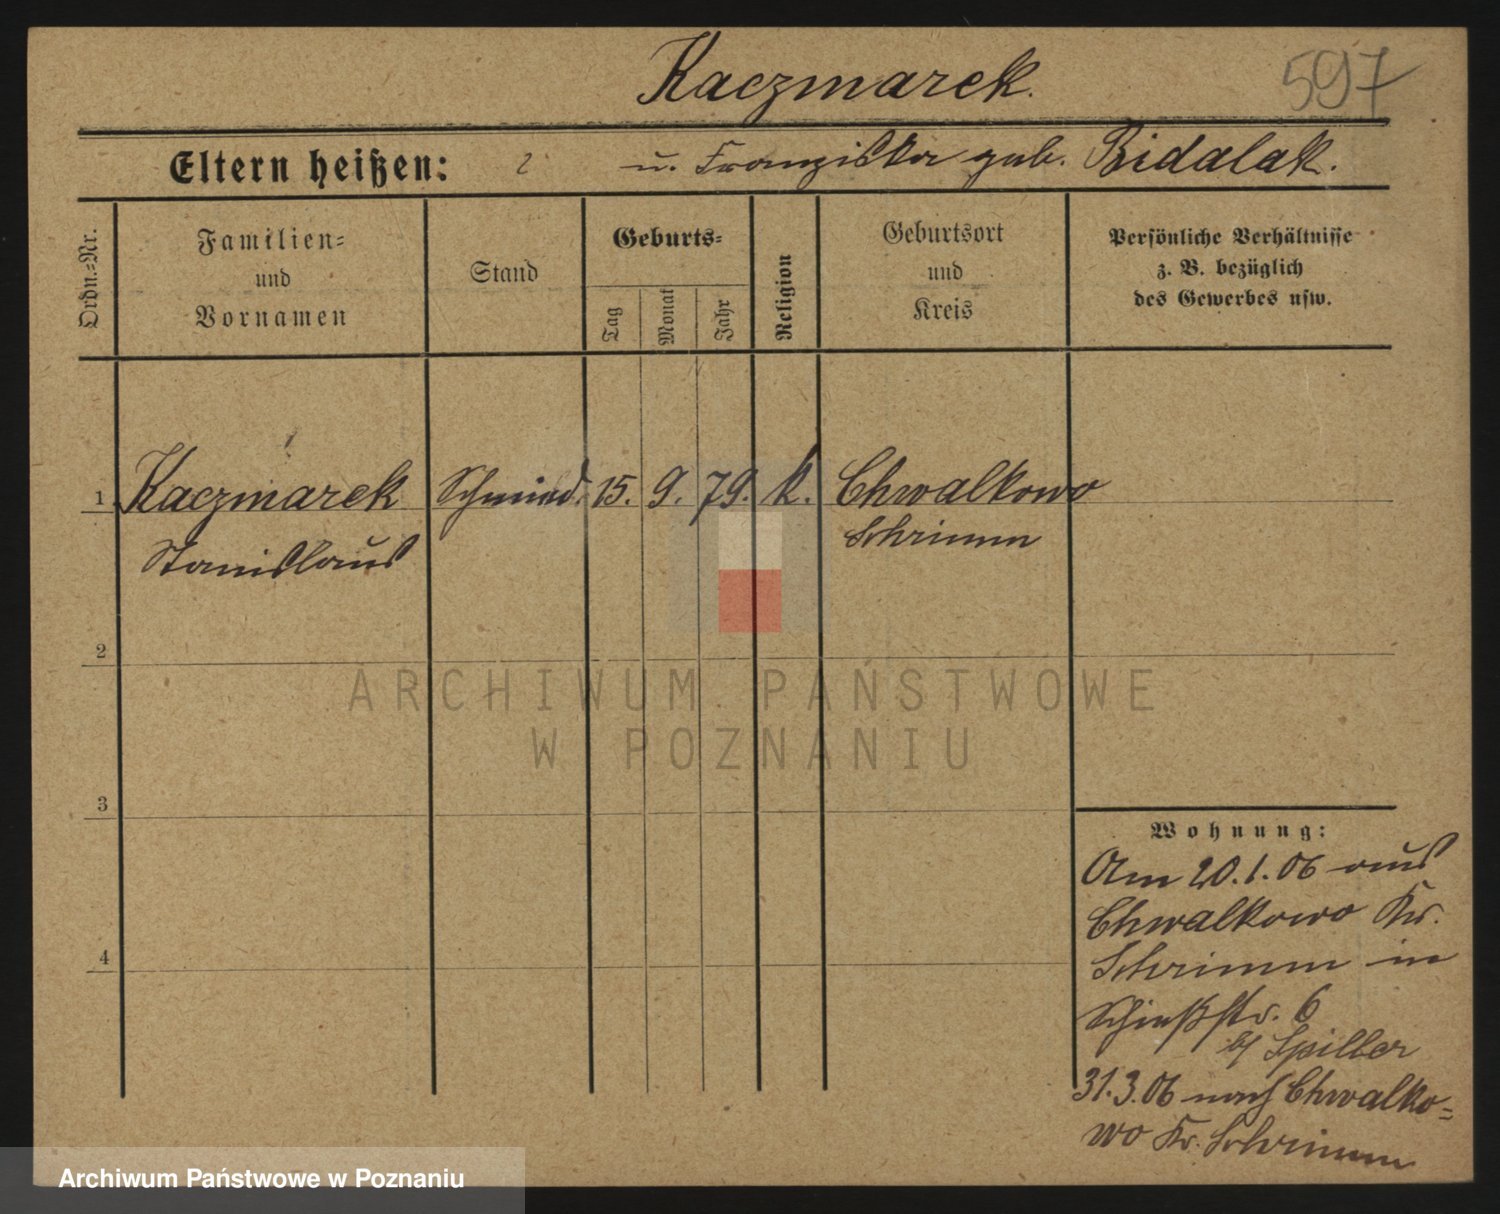 Kaczmarek.
597
Eltern heißen: ? u. Franziska geb. Bidalak.
Ordn.-Nr.
Familien-
und
Vornamen
Stand
Geburts-
Tag
Monat
Jahr
Religion
Geburtsort
und
Kreis
Persönliche Verhältnisse
z. B. bezüglich
des Gewerbes usw.
1 Kaczmarek Schmied. 15. 9. 79. k. Chwalkowo
Stanislaus Schrimm
2
ARCHIWUM PAŃSTWOWE
W POZNANIU
3
Wohnung:
Am 20.1.06 aus
Chwalkowo Kr.
4
Schrimm in
Schießstr. 6
b/ Spiller
31.3.06 nach Chwalko=
wo Kr. Schrimm
Archiwum Państwowe w Poznaniu